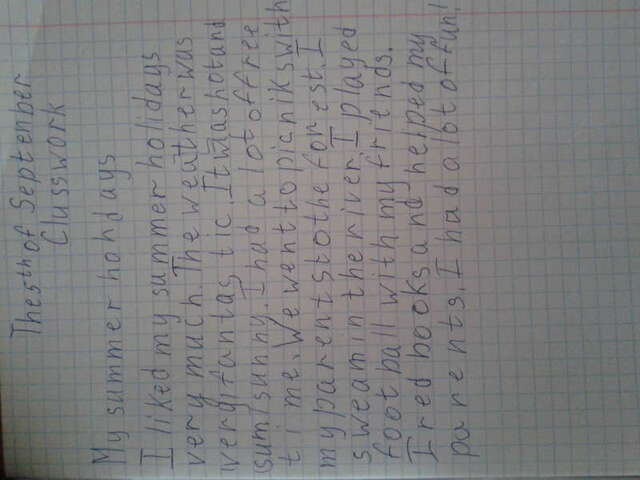 The 5th of September
Classwork
My summer holidays
I liked my summer holidays
very much. The weather was
very fantastic. It was hot and
sunny. I had a lot of free
time. We went to picniks with
my parents to the forest. I
sweam in the river. I played
football with my friends.
I red books and helped my
parents. I had a lot of fun!